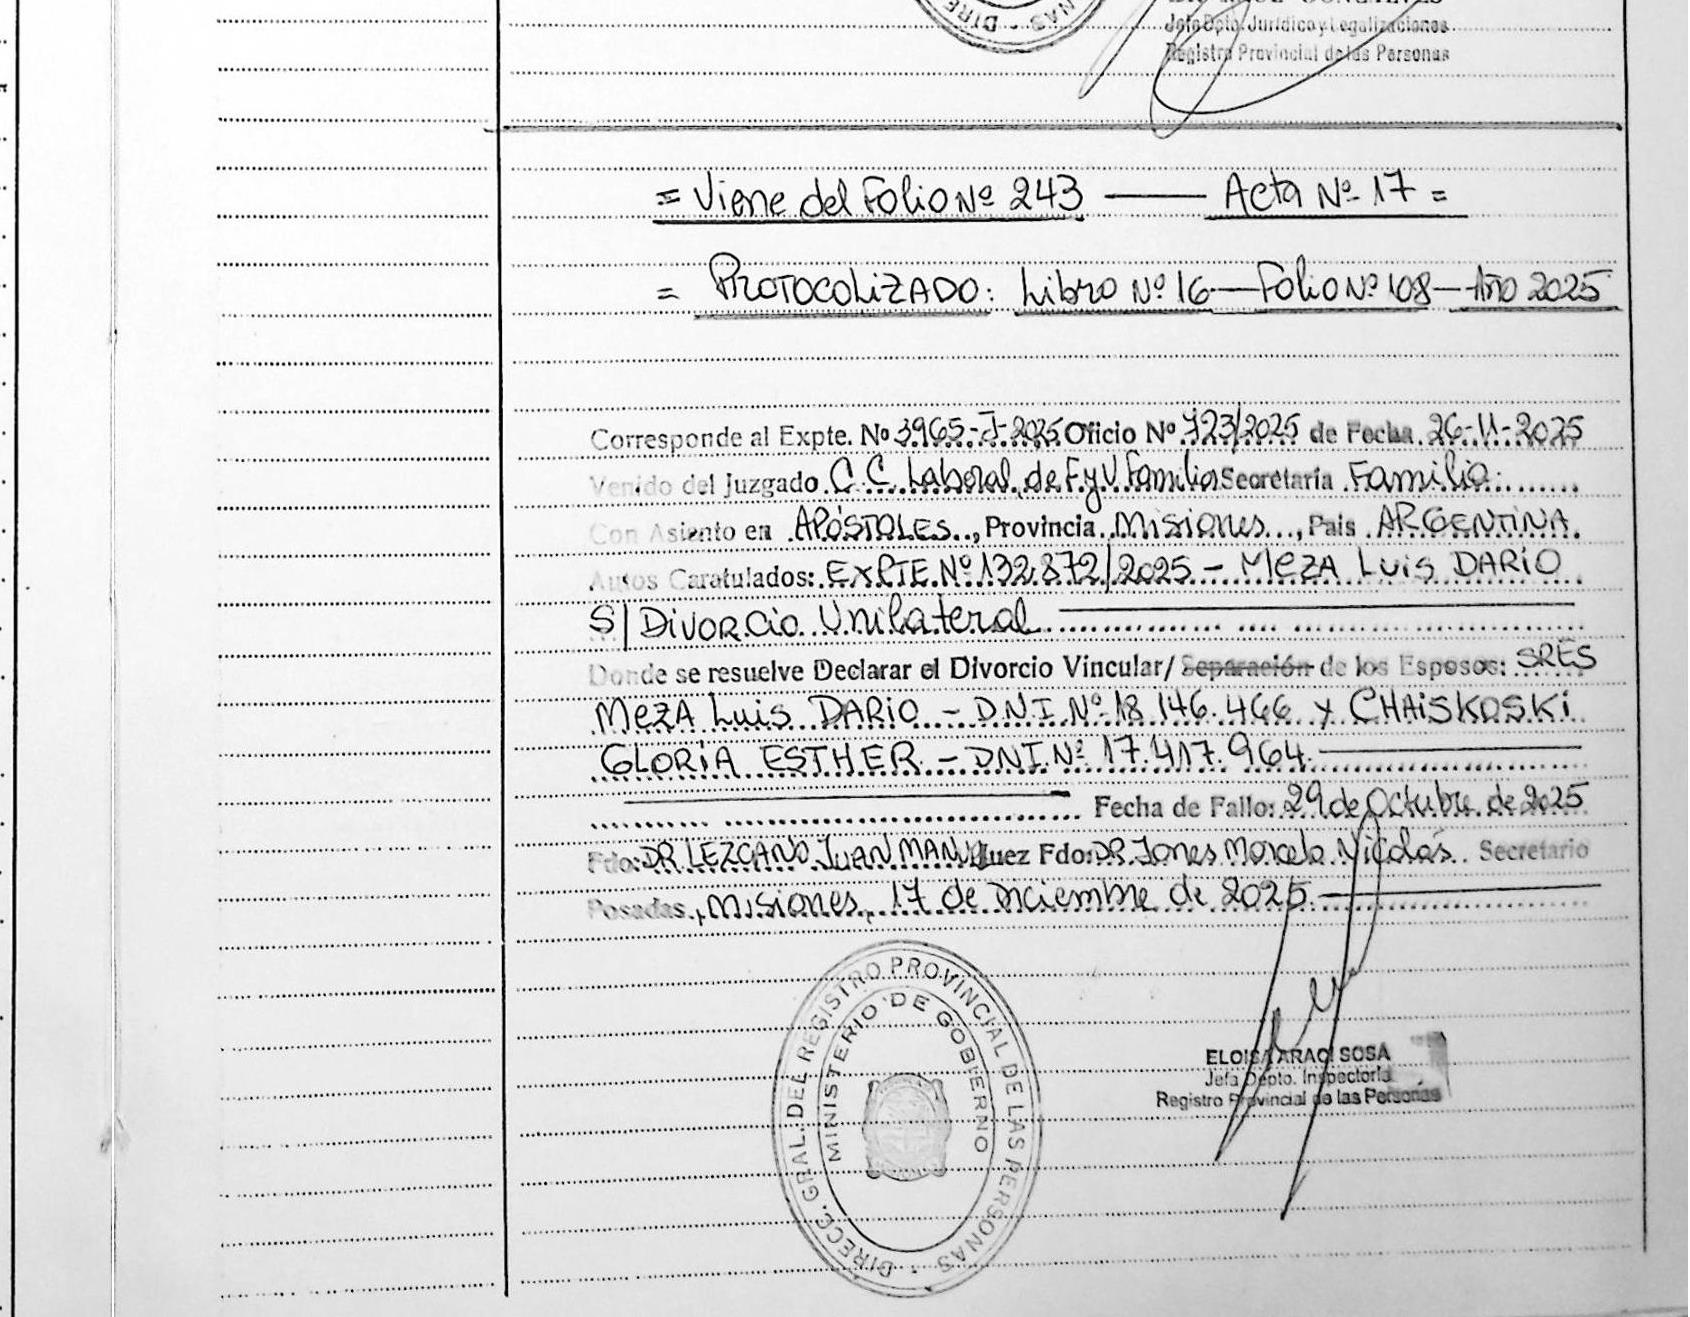 DIRE · NAS
Jefa Dpto. Jurídico y Legalizaciones
Registro Provincial de las Personas
= Viene del Folio Nº 243 —— Acta Nº 17 =
= PROTOCOLIZADO: Libro Nº 16 — Folio Nº 108 — Año 2025
Corresponde al Expte. Nº 3965-J-2025 Oficio Nº 723/2025 de Fecha 26-11-2025
Venido del Juzgado C.C. Laboral de F. y V. Familia Secretaría Familia
Con Asiento en APÓSTOLES, Provincia Misiones, Pais ARGENTINA.
Autos Caratulados: EXPTE. Nº 132.872/2025 - MEZA LUIS DARIO
S/ DIVORCIO Unilateral
Donde se resuelve Declarar el Divorcio Vincular/ Separación de los Esposos: SRES
MEZA Luis DARIO - D.N.I. Nº 18.146.466 y CHAISKOSKI
GLORIA ESTHER - DNI. Nº 17.417.964
Fecha de Fallo: 29 de Octubre de 2025
Fdo: DR LEZCANO JUAN MANU Juez Fdo: DR. Jones Marcelo Nicolás Secretario
Posadas, Misiones, 17 de Diciembre de 2025
DIRECC. GRAL. DEL REGISTRO PROVINCIAL DE LAS PERSONAS ·
MINISTERIO DE GOBIERNO
ELOISA ARACI SOSA
Jefa Depto. Inspectoría
Registro Provincial de las Personas